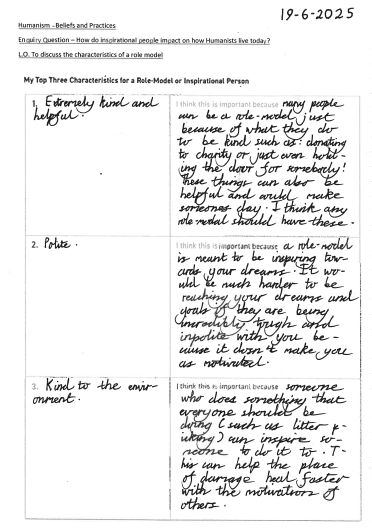 19-6-2025
Humanism – Beliefs and Practices
Enquiry Question – How do inspirational people impact on how Humanists live today?
L.O. To discuss the characteristics of a role model
My Top Three Characteristics for a Role-Model or Inspirational Person
1. Extremely kind and
helpful.
I think this is important because many people
can be a role-model just
because of what they do
to be kind such as: donating
to charity or just even hold-
ing the door for somebody!
These things can also be
helpful and would make
someones day. I think any
role-model should have these.
2. Polite.
I think this is important because a role-model
is meant to be inspiring tow-
ards your dreams. It wo-
uld be much harder to be
reaching your dreams and
goals if they are being
incredibly tough and
inpolite with you be-
cause it doesn't make you
as motivated.
3. Kind to the envir-
onment.
I think this is important because someone
who does something that
everyone should be
doing (such as litter p-
icking) can inspire so-
meone to do it to. T-
his can help the phase
of damage heal faster
with the motivation of
others.